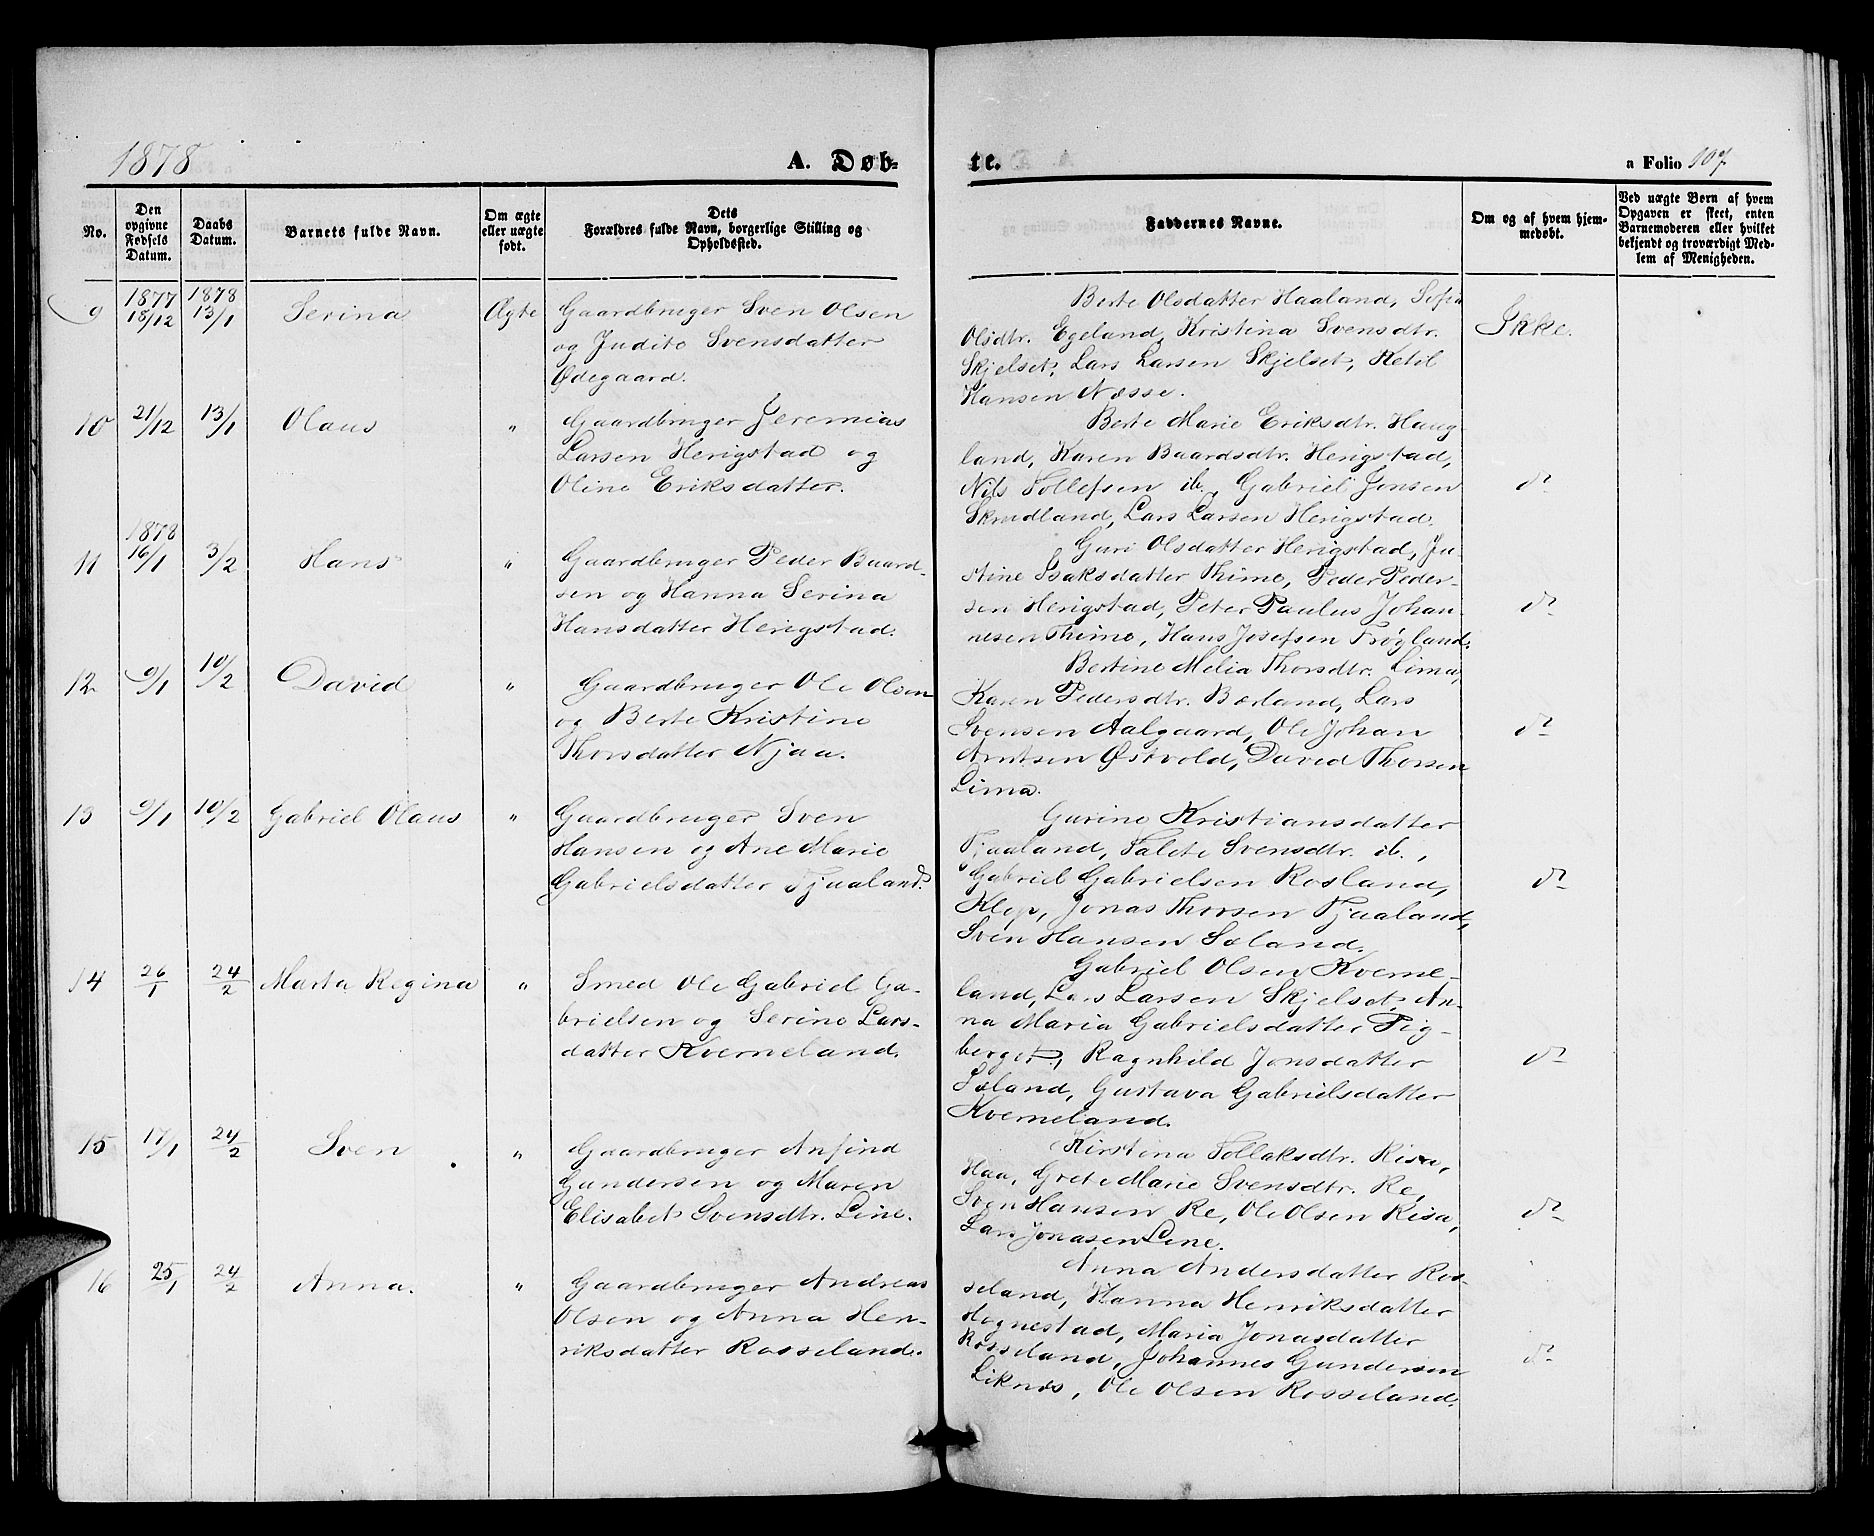 1878
A. Døb-
te.
a Folio 107.
No.
Den opgivne Fødsels Datum.
Daabs Datum.
Barnets fulde Navn.
Om ægte eller uægte født.
Dets Forældres fulde Navn, borgerlige Stilling og Opholdssted.
Faddernes Navne.
Om og af hvem hjem-
medøbt.
Ved uægte Børn af hvem
Opgaven er skeet, enten
Barnemoderen eller hvilket
bekjendt og troværdigt Med-
lem af Menigheden.
9
1877 18/12
1878 13/1
Serina
Ægte
Gaardbruger Sven Olsen
og Judite Svensdatter
Ødegaard.
Berte Olsdatter Haaland, Sofia
Olsdtr. Egeland, Kristina Svensdtr.
Skjelset, Lars Larsen Skjelset, Ketil
Hansen Næsse.
Ikke.
10
21/12
13/1
Olaus
"
Gaardbruger Jeremias
Larsen Herigstad og
Oline Eriksdatter.
Berte Marie Eriksdtr. Haug
land, Karen Baardsdtr. Herigstad,
Nils Tollefsen ib., Gabriel Jonsen
Skrudland, Lars Larsen Herigstad.
do
11
1878 16/1
3/2
Hans
"
Gaardbruger Peder Baard-
sen og Hanna Serina
Hansdatter Herigstad.
Guri Olsdatter Herigstad, Ju-
stine Isaksdatter Thime, Peder Peder-
sen Herigstad, Peter Paulus Johan-
nesen Thime, Hans Josefsen Frøyland.
do
12
9/1
10/2
David
"
Gaardbruger Ole Olsen
og Berte Kristine
Thorsdatter Njaa.
Bertine Melia Thorsdtr. Lima,
Karen Pedersdtr. Bærland, Lars
Svensen Aalgaard, Ole Johan
Arntsen Østvold, David Thorsen
Lima.
do
13
9/1
10/2
Gabriel Olaus
"
Gaardbruger Sven
Hansen og Ane Marie
Gabrielsdatter Tjaaland.
Gurine Kristiansdatter
Tjaaland, Talete Svensdtr. ib.,
Gabriel Gabrielsen Rosland,
Klep, Jonas Thorsen Tjaaland,
Sven Hansen Søland.
do
14
26/1
24/2
Marta Regina
"
Smed Ole Gabriel Ga-
brielsen og Serine Lars-
datter Kverneland.
Gabriel Olsen Kverne-
land, Lars Larsen Skjelset, An-
na Maria Gabrielsdatter Tig-
berget, Ragnhild Jonsdatter
Søland, Gustava Gabrielsdatter
Kverneland.
do
15
17/1
24/2
Sven
"
Gaardbruger Anfind
Gundersen og Maren
Elisabet Svensdtr. Line.
Kirstina Tollaksdtr. Risa,
Haa, Grete Marie Svensdtr. Re,
Sven Hansen Re, Ole Olsen Risa,
Lars Jonasen Line.
do
16
25/1
24/2
Anna.
"
Gaardbruger Andreas
Olsen og Anna Hen-
riksdatter Rosseland.
Anna Andersdatter Ros-
seland, Hanna Henriksdatter
Hognestad, Maria Jonasdatter
Rosseland, Johannes Gundersen
Liknes, Ole Olsen Rosseland.
do